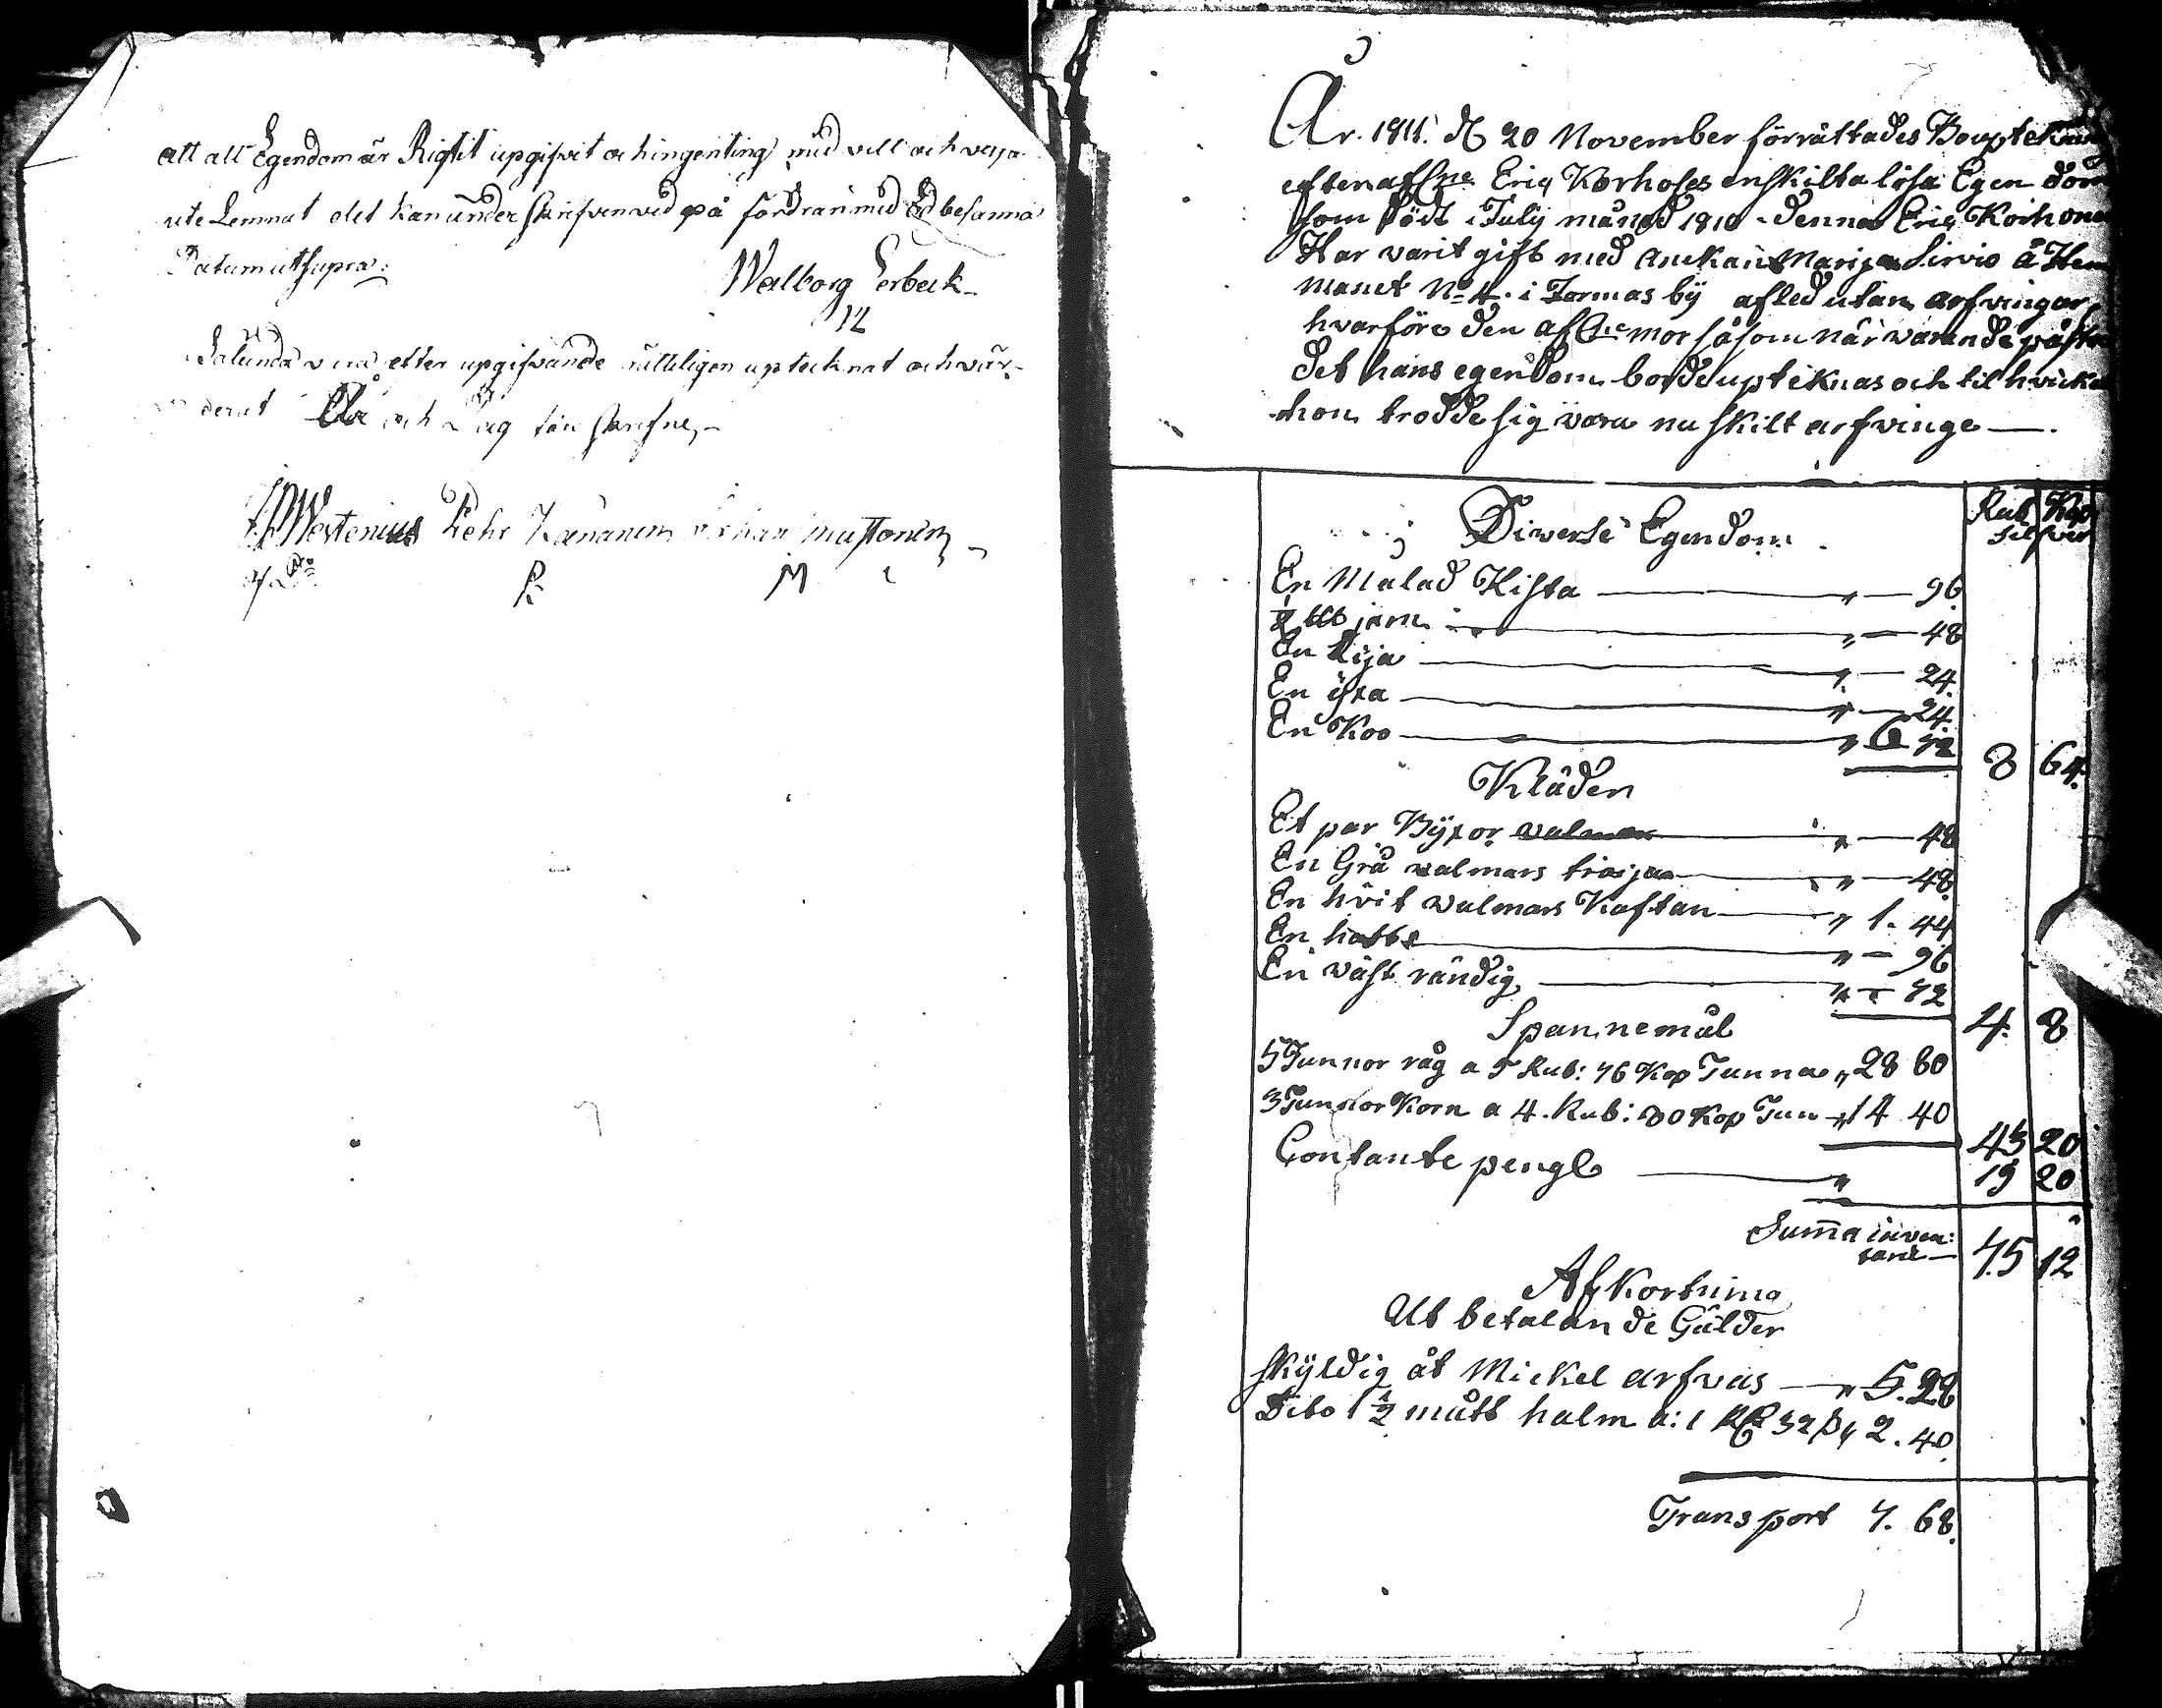 att alt Egendom är Rigtit upgifvit och ingenting med vill och veja
ute Lemnat det kan under skrifven ved på fordran med Ed besanna
Datum ut supra:
Walborg Erbeck
Sålunda vara efter upgifvande rätteligen uptecknat och vär-
derat År och Dag för skrefne,-
Westenius Pehr Kananen Johan Mustonen
År. 1811. d 20 November förrättades Boupteknin
efter afl:ne Eriq Korhoses enskilta lösa Egen dom
som dödt i July månad 1810 - denna Eriq Korhone
Har varit gift med Anckan Marija Sirvio å Hem
manet No 4. i Tormas bÿ afled utan arfvingar,
hvarföre den afl:ne mor såsom när varande påsto
det hans egendom borde upteknas och til hvicke
hon trodde sig vara nu skilt arfvinge —.
Diverse Egendom Rub Kop
Silfver
En Malad Kista — " — 96
½ jarn — " — 48
En Rija — " — 24
En ÿxa — " — 24
En Koo — " 6 72
8 64
Kläden
Et par Bÿxor walmar — " — 48
En Grå walmars tröija — " — 48
En hvit walmars Kaftan — " 1. 44
En hatt — " — 96
En väst rändig — " — 72
4. 8
Spannemål
5 Tunnor råg a 5 Rub: 76 Kop Tunna " 28 80
3 Tunnor Korn a 4. Rub: 80 Kop Tun " 14 40
43 20
Contante pengl — " 19 20
Summa inven:
tarie — 75 12
Af Kortning
Ut betalan de Gälder
Skÿldig åt Mickel arfvas — " 5. 28
Dito 1 ½ mått halm a: 1 32 " 2. 40
Transport 7. 68